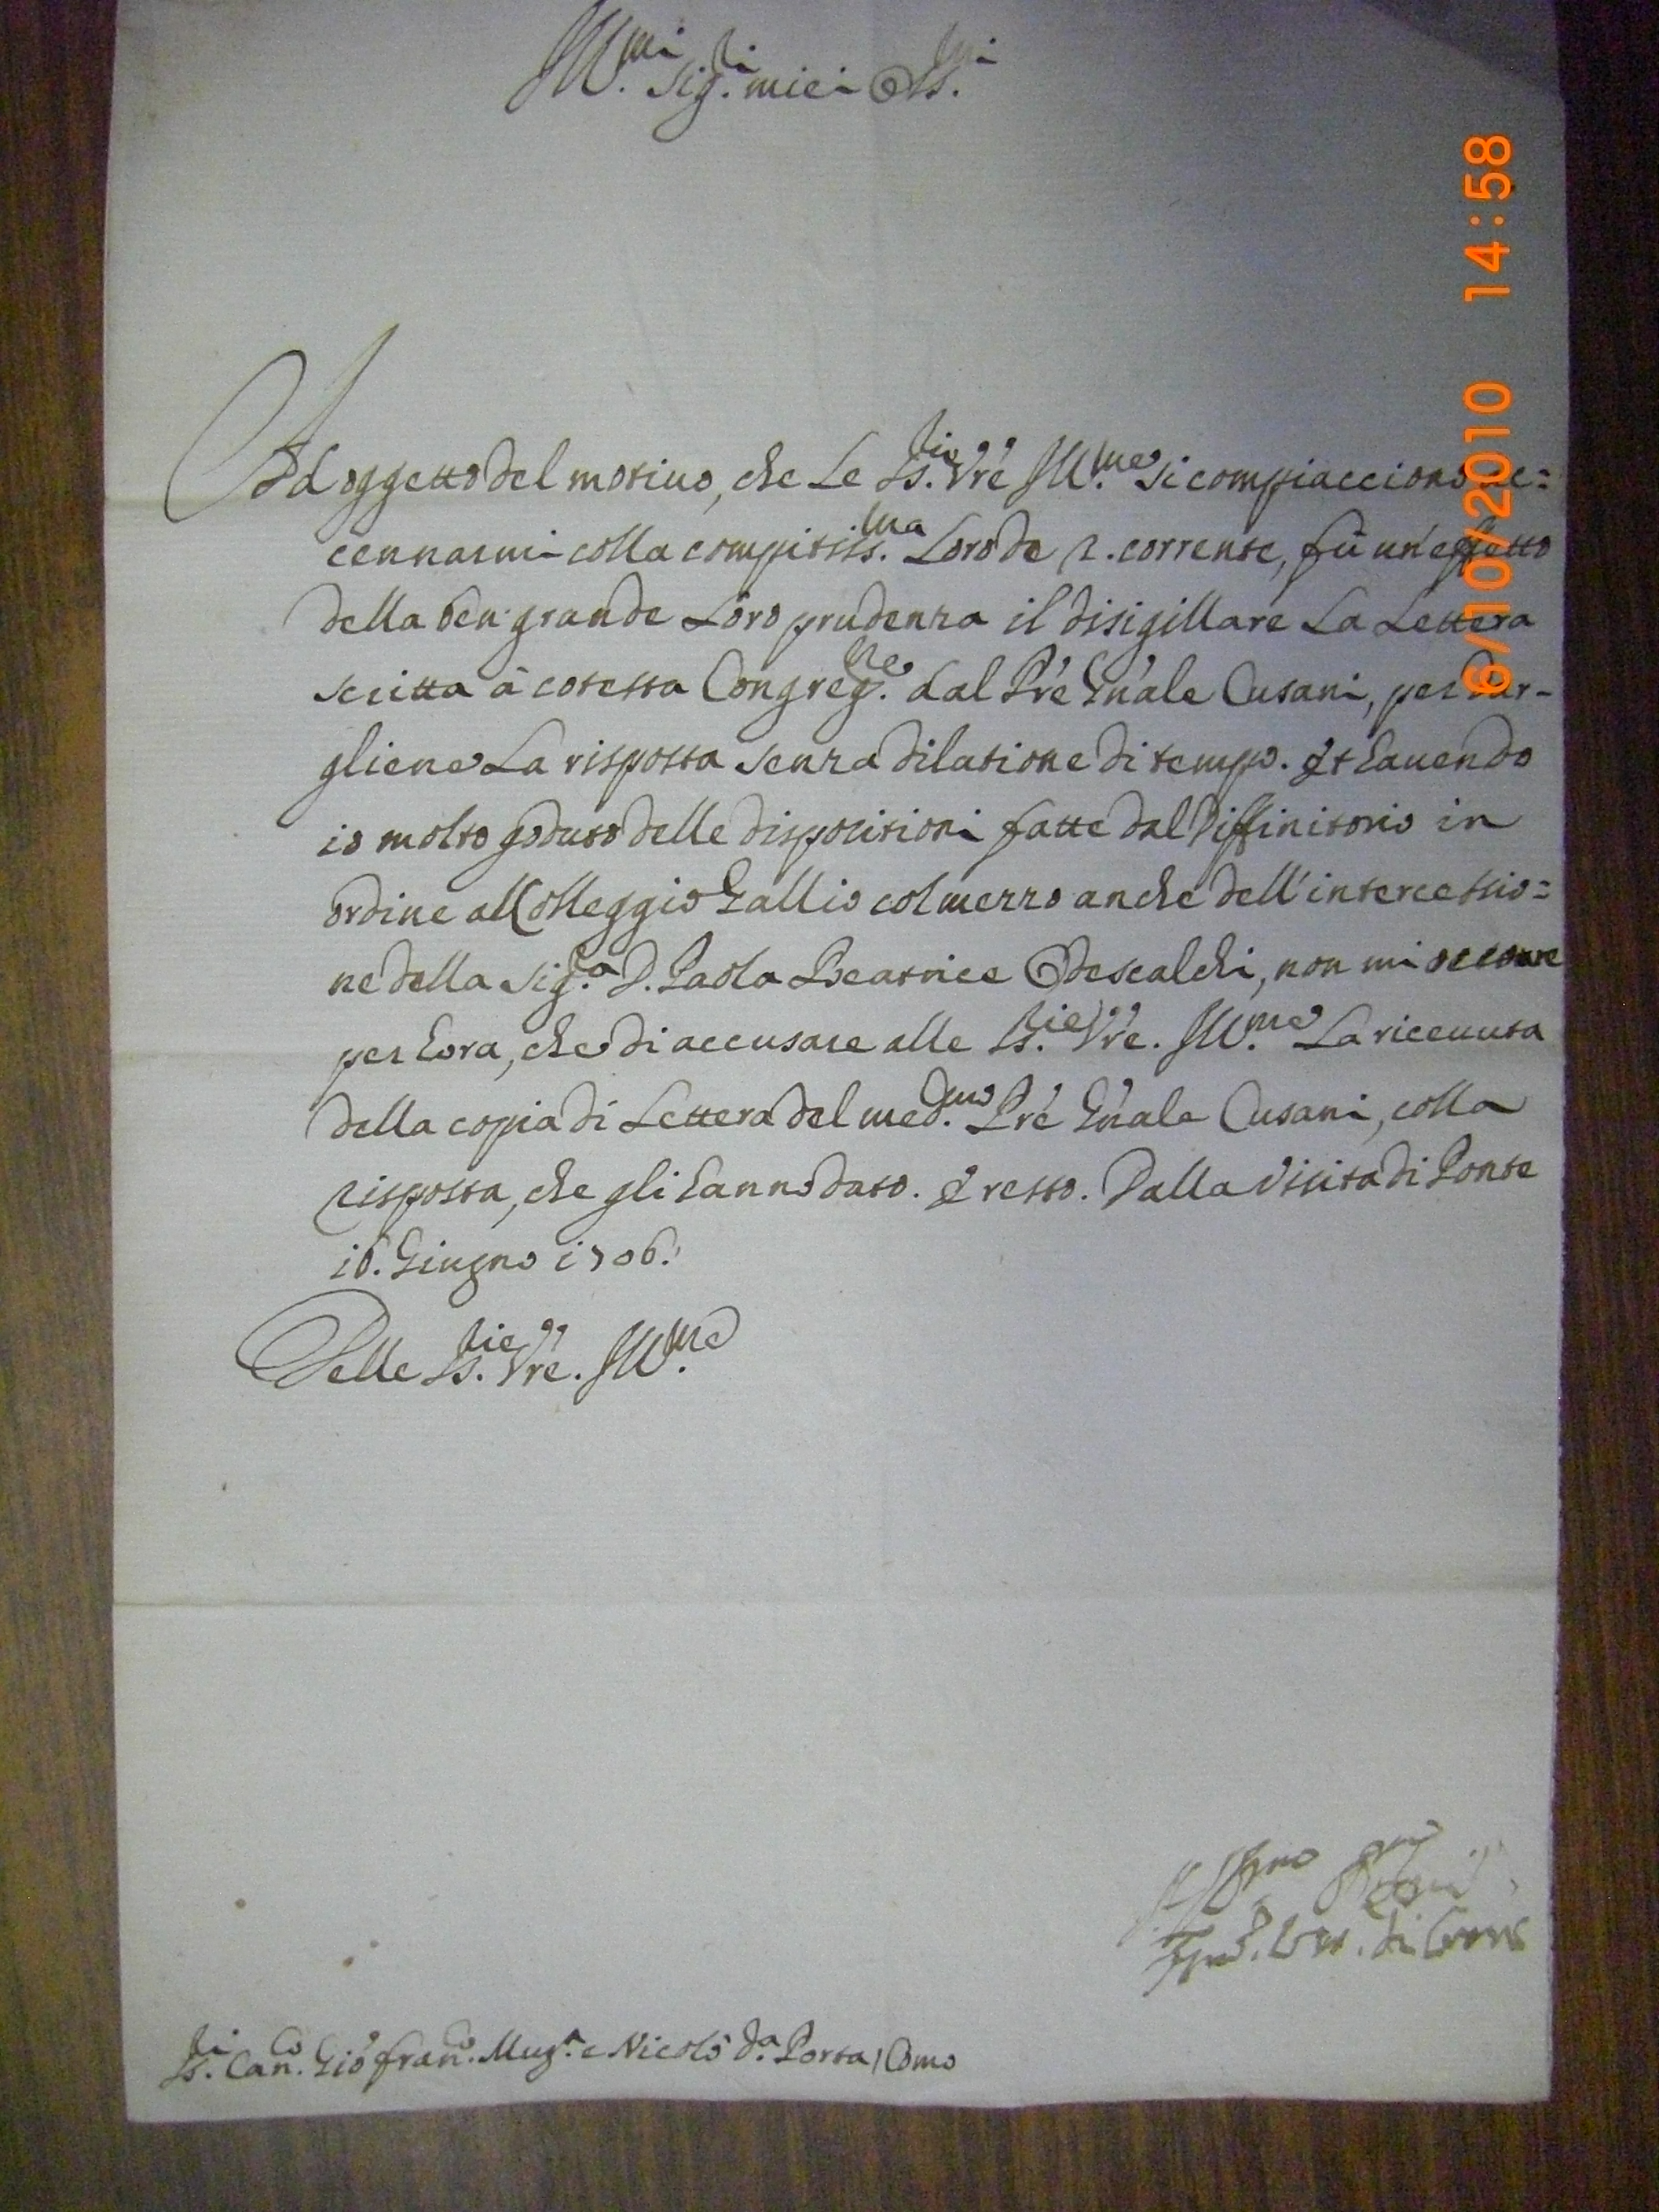 Ill.mi Sig.ri miei Oss.mi
Ad oggetto del motivo, che Le SS.rie Vre Ill.me si compiacciono ac=
cennarmi colla compitiss.ma Loro de 2. corrente, fù un'effetto
della ben grande Loro prudenza il disigillare La Lettera
scritta à cotesta Congreg.ne dal Pre Gn'ale Cusani, per dar-
gliene La risposta senza dilatione di tempo. Et havendo
io molto goduto delle dispositioni fatte dal Diffinitorio in
ordine al Colleggio Gallio col mezzo anche dell'intercessio=
ne della Sig.ra D. Paola Beatrice Odescalchi, non mi occorre
per hora, che di accusare alle SS.rie Vre. Ill.me La ricevuta
della copia di Lettera del med.mo Pre Gn'ale Cusani, colla
risposta, che gli hanno dato. E resto. Dalla Visita di Ponte
16. Giugno 1706.
Delle SS.rie Vre. Ill.me
di Como
SS.ri Can.ci Gio fran.co Mug.a e Nicolò d.a Porta / Como
6/10/2010 14:58